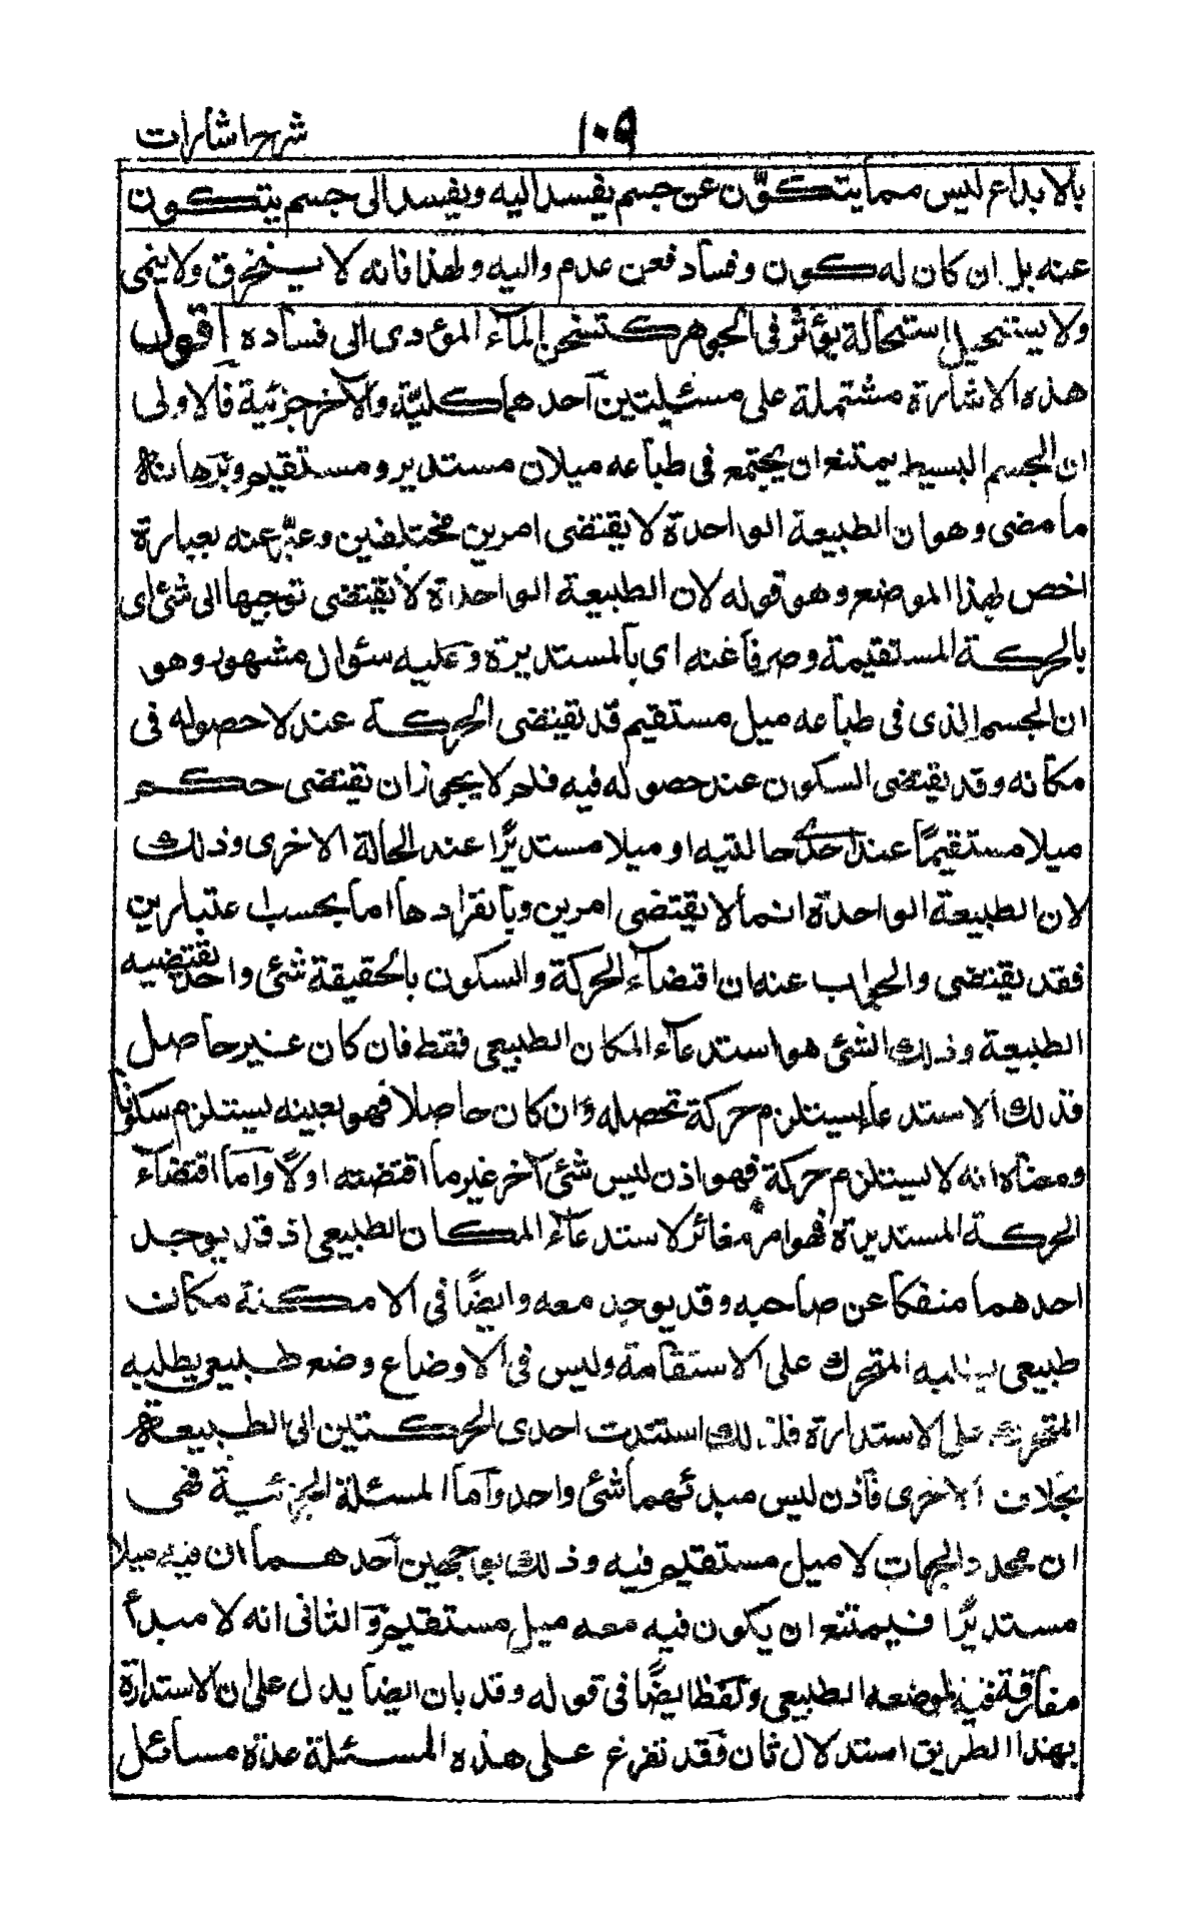 شرح اشارات
١٠٩
بالابداع ليس مما يتكوّن عن جسم يفسد اليه ويفسد الى جسم يتكون
عنه بل ان كان له كون وفساد فعن عدم واليه ولهذا فانه لا ينخرق ولا ينمى
ولا يستحيل استحالة يؤثر فى الجوهر كتسخن المآء المؤدى الى فساده اقول
هذه الاشارة مشتملة على مسئلتين آحدهما كليّة والآخر جزئية فالاولى
ان الجسم البسيط يمتنع ان يجتمع فى طباعه ميلان مستدير ومستقيم وبرهانه
ما مضى وهو ان الطبيعة الواحدة لا يقتضى امرين مختلفين وعبّر عنه بعبارة
اخص لهذا الموضع وهو قوله لان الطبيعة الواحدة لا يقتضى توجيها الى شئ اى
بالحركة المستقيمة وصرفا عنه اى بالمستديرة وعليه سئوال مشهور وهو
ان الجسم الذى فى طباعه ميل مستقيم قد تقيتضى الحركة عند لا حصوله فى
مكانه وقد يقتضى السكون عند حصوله فيه فلم لا يجوز ان يقتضى حكم
ميلا مستقيمًا عند احدى حالتيه او ميلا مستديرًا عند الحالة الاخرى وذلك
لان الطبيعة الواحدة انما لا يقتضى امرين وبانفرادها اما بحسب اعتبارين
فقد يقتضى والجواب عنه ان اقتضآء الحركة والسكون بالحقيقة شئ واحد تقتضيه
الطبيعة وذلك الشئ هو استدعآء المكان الطبيعى فقط فان كان غير حاصل
فذلك الاستدعآء يستلزم حركة تحصله وان كان حاصلا فهو بعينه يستلزم سكونا
ومعناه انه لا يستلزم حركة فهو اذن ليس شئ آخر غير ما اقتضته اولًا وآما اقتضآء
الحركة المستديرة فهو امر مغائر لاستدعآء المكان الطبيعى اذ قد يوجد
احدهما منفكا عن صاحبه وقد يوجد معه وايضًا فى الامكنة مكان
طبيعى يطلبه المتحرك على الاستقامة وليس فى الاوضاع وضع طبيعى يطلبه
المتحرك على الاستدارة فلذلك استندت احدى الحركتين الى الطبيعة
بخلاف الاخرى فآذن ليس مبدئهما شئ واحد وآما المسئلة الجزئية فهى
ان محدد الجهات لا ميل مستقيم فيه وذلك بوجهين آحدهما ان فيه ميلا
مستديرًا فيمتنع ان يكون فيه معه ميل مستقيم وآلثانى انه لا مبدأ
مفارقة فيه لموضعه الطبيعى ولفظ ايضًا فى قوله وقد بان ايضا يدل على ان الاستدارة
بهذا الطريق استدلال ثان فقد تفرع على هذه المسئلة عدة مسائل